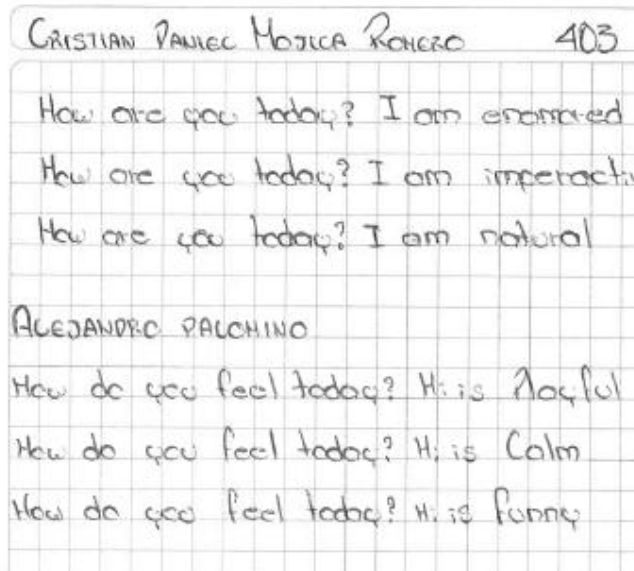 CRISTIAN DANIEL MOJICA ROMERO 403
How are you today? I am enamored
How are you today? I am imperactiv
How are you today? I am natural
ALEJANDRO PALOMINO
How do you feel today? Hi is Playful
How do you feel today? Hi is Calm
How do you feel today? Hi is funny